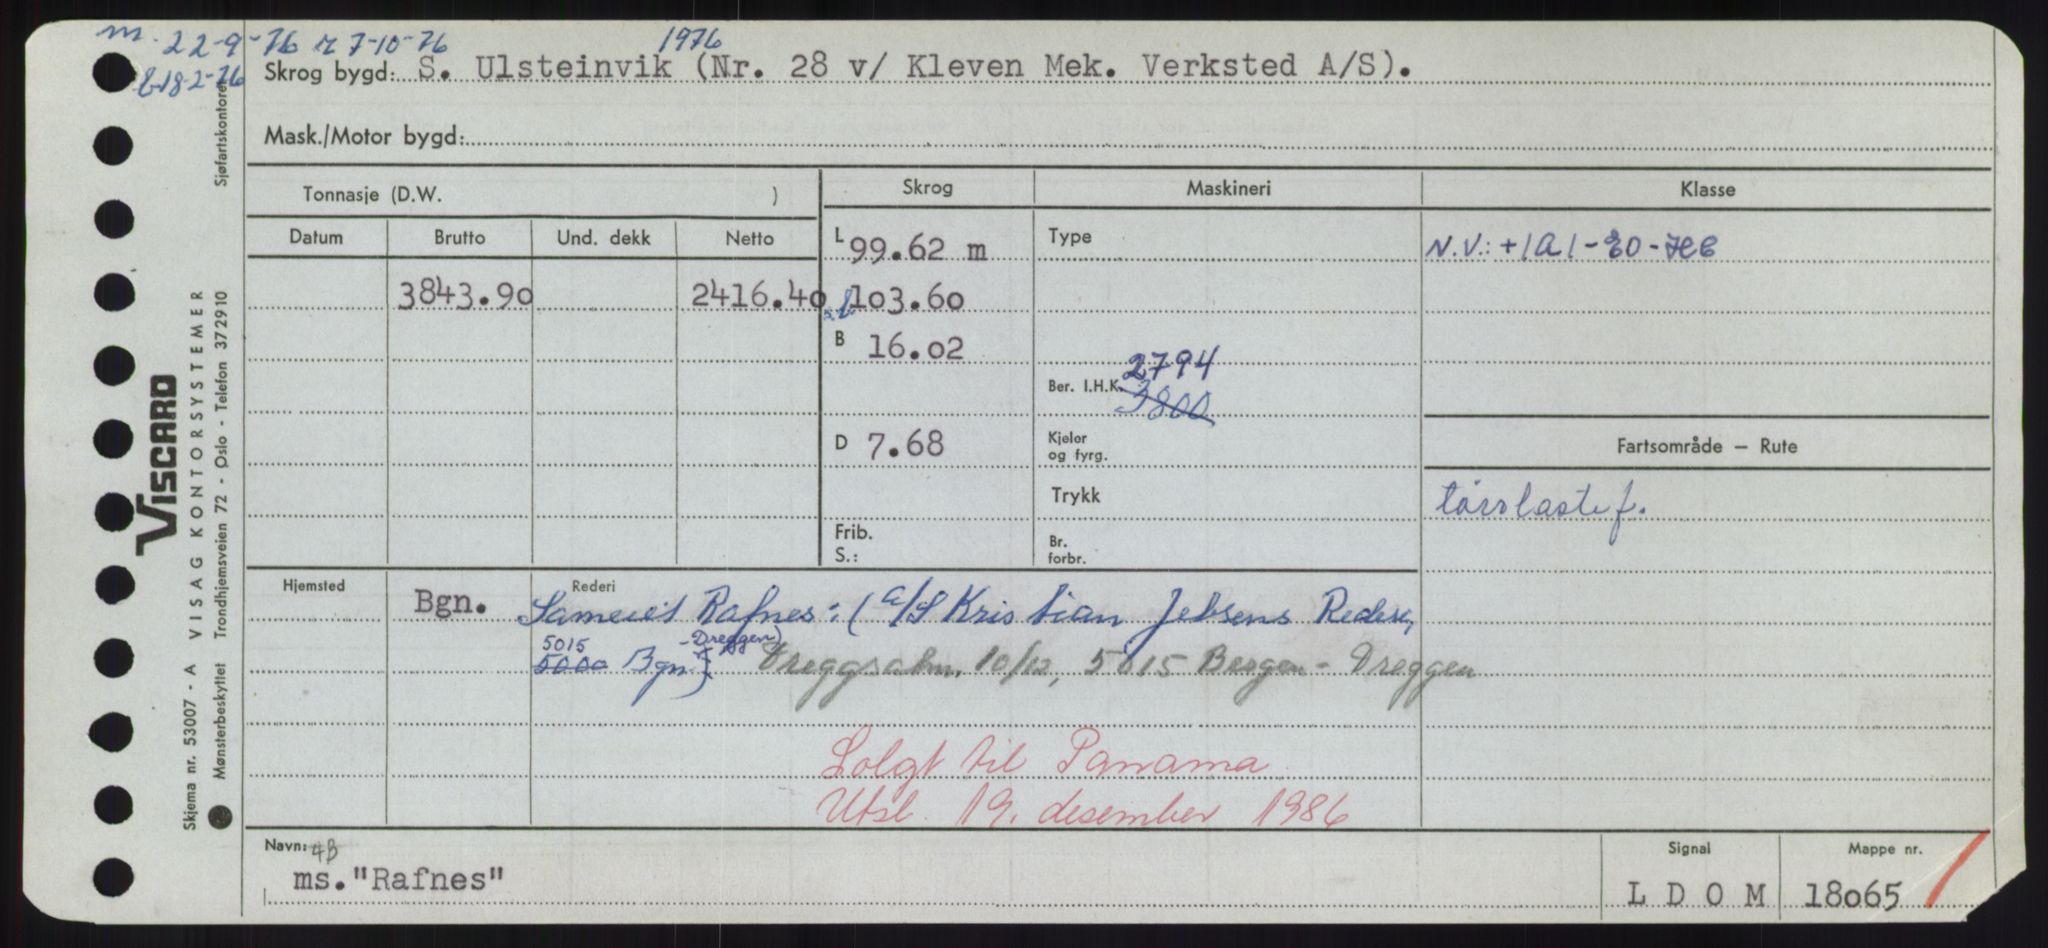 m. 22-9-76 r 7-10-76 1976
Skrog bygd: S. Ulsteinvik (Nr. 28 v/ Kleven Mek. Verksted A/S).
b-18-2-76
Mask./Motor bygd:
Tonnasje (D.W. ) Skrog Maskineri Klasse
Datum Brutto Und. dekk Netto L 99.62 m Type N.V.: +1A1-EO-HC
3843.90 2416.40 103.60
B 16.02
2794
Ber. I.H.K. 3800
D 7.68 Kjeler og fyrg. Fartsområde — Rute
Trykk tørrlastef.
Frib.
S.:
Br. forbr.
Hjemsted Bgn. Rederi Sameiet Rafnes: (A/S Kristian Jebsens Rederi,
5015 -Dreggen)
5000 Bgn.) Dreggsalm. 10/12, 5015 Bergen - Dreggen
Solgt til Panama
Utsl. 19. desember 1986
Navn: 4B
ms."Rafnes"
Signal L D O M
Mappe nr. 18065
VISCARD
VISAG KONTORSYSTEMER
Sjøfartskontoret
Skjema nr. 53007 - A
Mønsterbeskyttet Trondhjemsveien 72 - Oslo - Telefon 372910